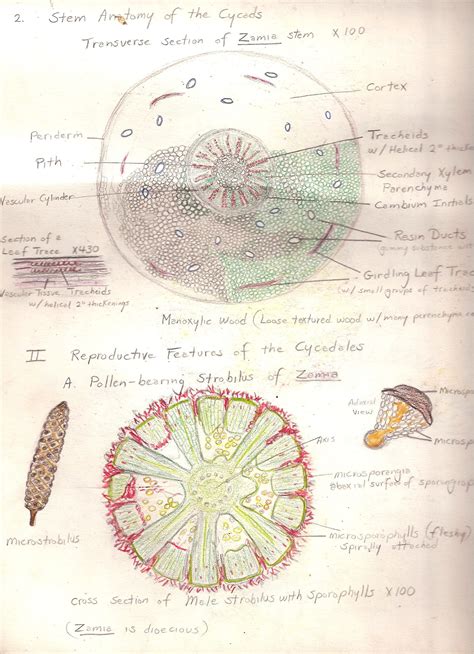 2. Stem Anatomy of the Cycads
Transverse section of Zamia stem x100
Cortex
Periderm
Pith
Vascular Cylinder
Tracheids
w/ Helical 2° thicke
Secondary Xylem
Parenchyma
Cambium Initials
Resin Ducts
(gummy substance w
Girdling Leaf Trac
(w/ small groups of tracheids
Section of a
Leaf Trace x430
Vascular Tissue Tracheids
w/ helical 2° thickenings
Monoxylic Wood (Loose textured wood w/ many parenchyma ce
II Reproductive Features of the Cycadales
A. Pollen-bearing Strobilus of Zamia
Adaxial
view
Microsp
Microsp
Axis
microsporangia
abaxial surface of sporoph
microsporophylls (fleshy)
spirally attached
Microstrobilus
cross section of Male strobilus with sporophylls x100
(Zamia is dioecious)